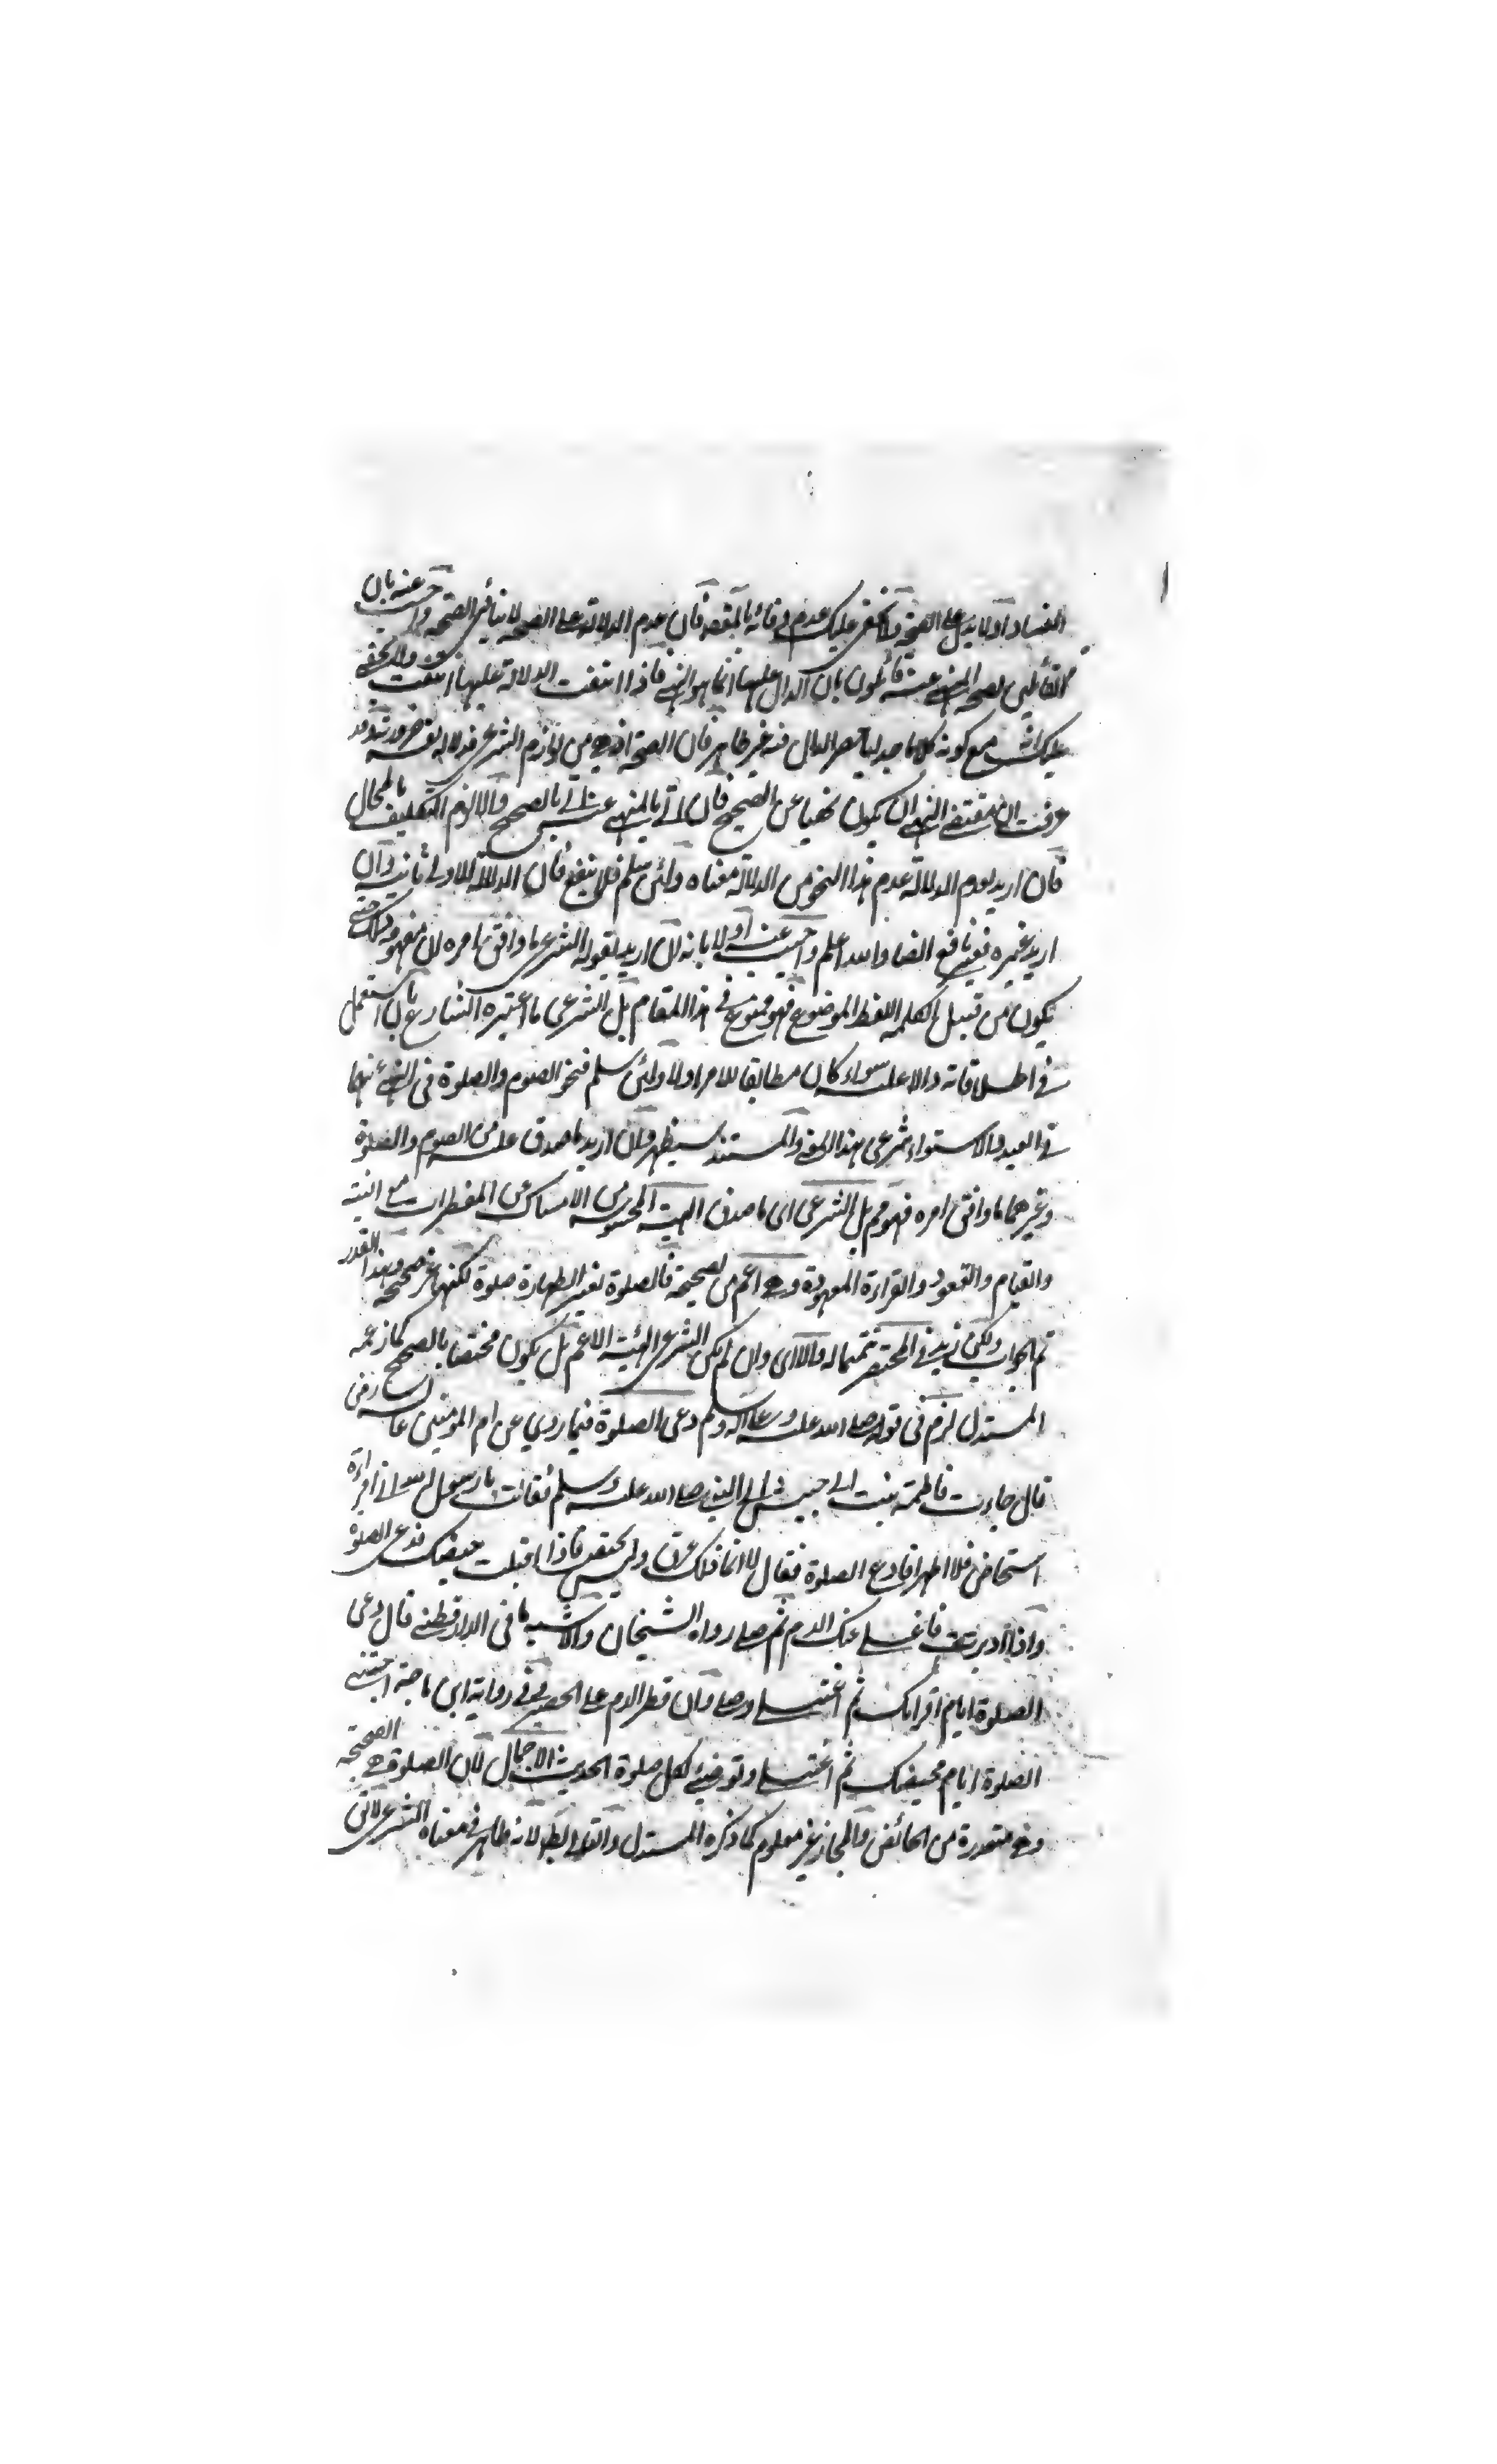 الفساد اولا يدل على الصحة ولا يخفى عليك عدم وفائه بالمقصد فان عدم الدلالة على الصحة لا ينافى الصحة واجيب عنه بان
القائلين بصحة المنهي عنه قائلون بان الدال عليها انما هو النهي فاذا انتفت الدلالة عليها انتفت هى ولا يخفى
عليك انه مع كونه كلاما جدليا حصر الدال فيه غير ظاهر فان الصحة اذ هى من لوازم الشرعى فدلالة
عرفت ان مقتضى النهي ان يكون نهيا عن الصحيح فان الآتى بالمنهي عنه آت بالصحيح والا لزم التكليف بالمحال
فان اريد بعدم الدلالة عدم هذا النحو من الدلالة معناه ولئن سلم فلا ينفع فان الدلالة الاولى ثابتة وان
اريد غيره فغير نافع ايضا والله اعلم واجيب عنه اولا بانه لان اريد بقوله الشرعى ما وافق امره ان مفهومه ذلك حتى
يكون من قبيل الكلمة اللفظ الموضوع فهو ممنوع فى هذا المقام بل الشرعى ما اعتبره الشارع بان استعمل
فى اطلاقاته دالا عليه سواء كان مطابقا للامر او لا ولئن سلم فنحو الصوم والصلوة فى النهي عنهما
فى العيد والاستواء شرعى بهذا المعنى والمستند سيظهر وان اريد ما صدق عليه من الصوم والصلوة
وغيرهما ما وافق امره فهو مم بل الشرعى اى ما صدق الهيئة المخصوصة من الامساك عن المفطرات مع النية
والقيام والقعود والقراءة المعهودة وهى اعم من الصحيحة فالصلوة بغير الطهارة صلوة لكنها غير صحيحة وبهذا القدر
تم الجواب ولكن زيد فى المختصر تتميما له والا اى وان لم يكن الشرعى الهيئة الاعم بل يكون مختصا بالصحيح كما زعمه
المستدل لزم فى قوله صلى الله عليه وعلى آله وسلم دعى الصلوة فيما روي عن ام المؤمنين عائشة رضى
قال جاءت فاطمة بنت ابى حبيش الى النبى صلى الله عليه وسلم فقالت يا رسول الله انى امراءة
استحاض فلا اطهر افادع الصلوة فقال لا انما ذلك عرق وليس بحيض فاذا اقبلت حيضتك فدعى الصلوة
واذا ادبرت فاغسلى عنك الدم ثم صلى رواه الشيخان والاشبه ما فى الدارقطنى قال دعى
الصلوة ايام اقرائك ثم اغتسلى وصلى وان قطر الدم على الحصير وفى رواية ابن ماجة اجتنبى
الصلوة ايام محيضك ثم اغتسلى وتوضئى لكل صلوة الحديث الاجمال لان الصلوة هى الصحيحة
وهى متعذرة من الحائض والمجاز غير معلوم كما ذكره المستدل والتالى بطل لانه ظاهر فى معناه الشرعى لانى